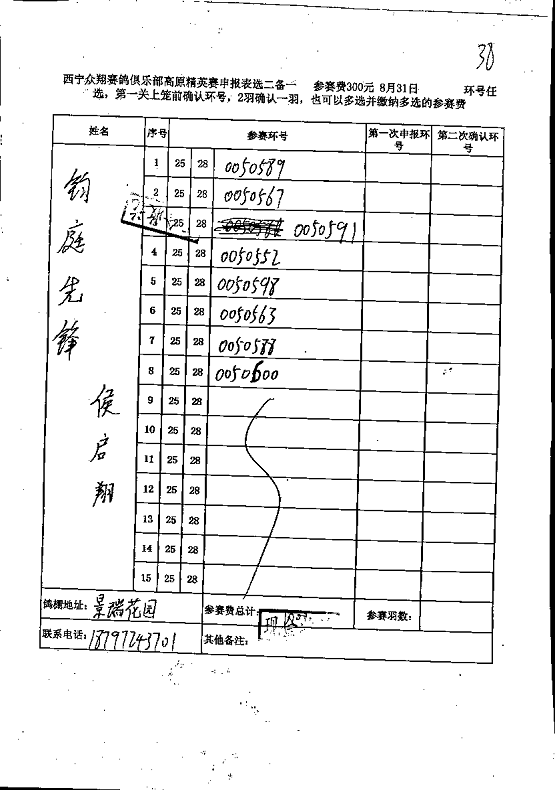 38
西宁众翔赛鸽俱乐部高原精英赛申报表选二备一 参赛费300元 8月31日 环号任
选，第一关上笼前确认环号，2羽确认一羽，也可以多选并缴纳多选的参赛费
姓名 序号 参赛环号 第一次申报环号 第二次确认环号
钧庭先锋
侯启翔
1 25 28 0050589
2 25 28 0050567
25 28 0050591
4 25 28 0050552
5 25 28 0050598
6 25 28 0050563
7 25 28 0050588
8 25 28 0050600
9 25 28
10 25 28
11 25 28
12 25 28
13 25 28
14 25 28
15 25 28
鸽棚地址: 景瑞花园 参赛费总计: 参赛羽数:
联系电话: 18797243701 其他备注: